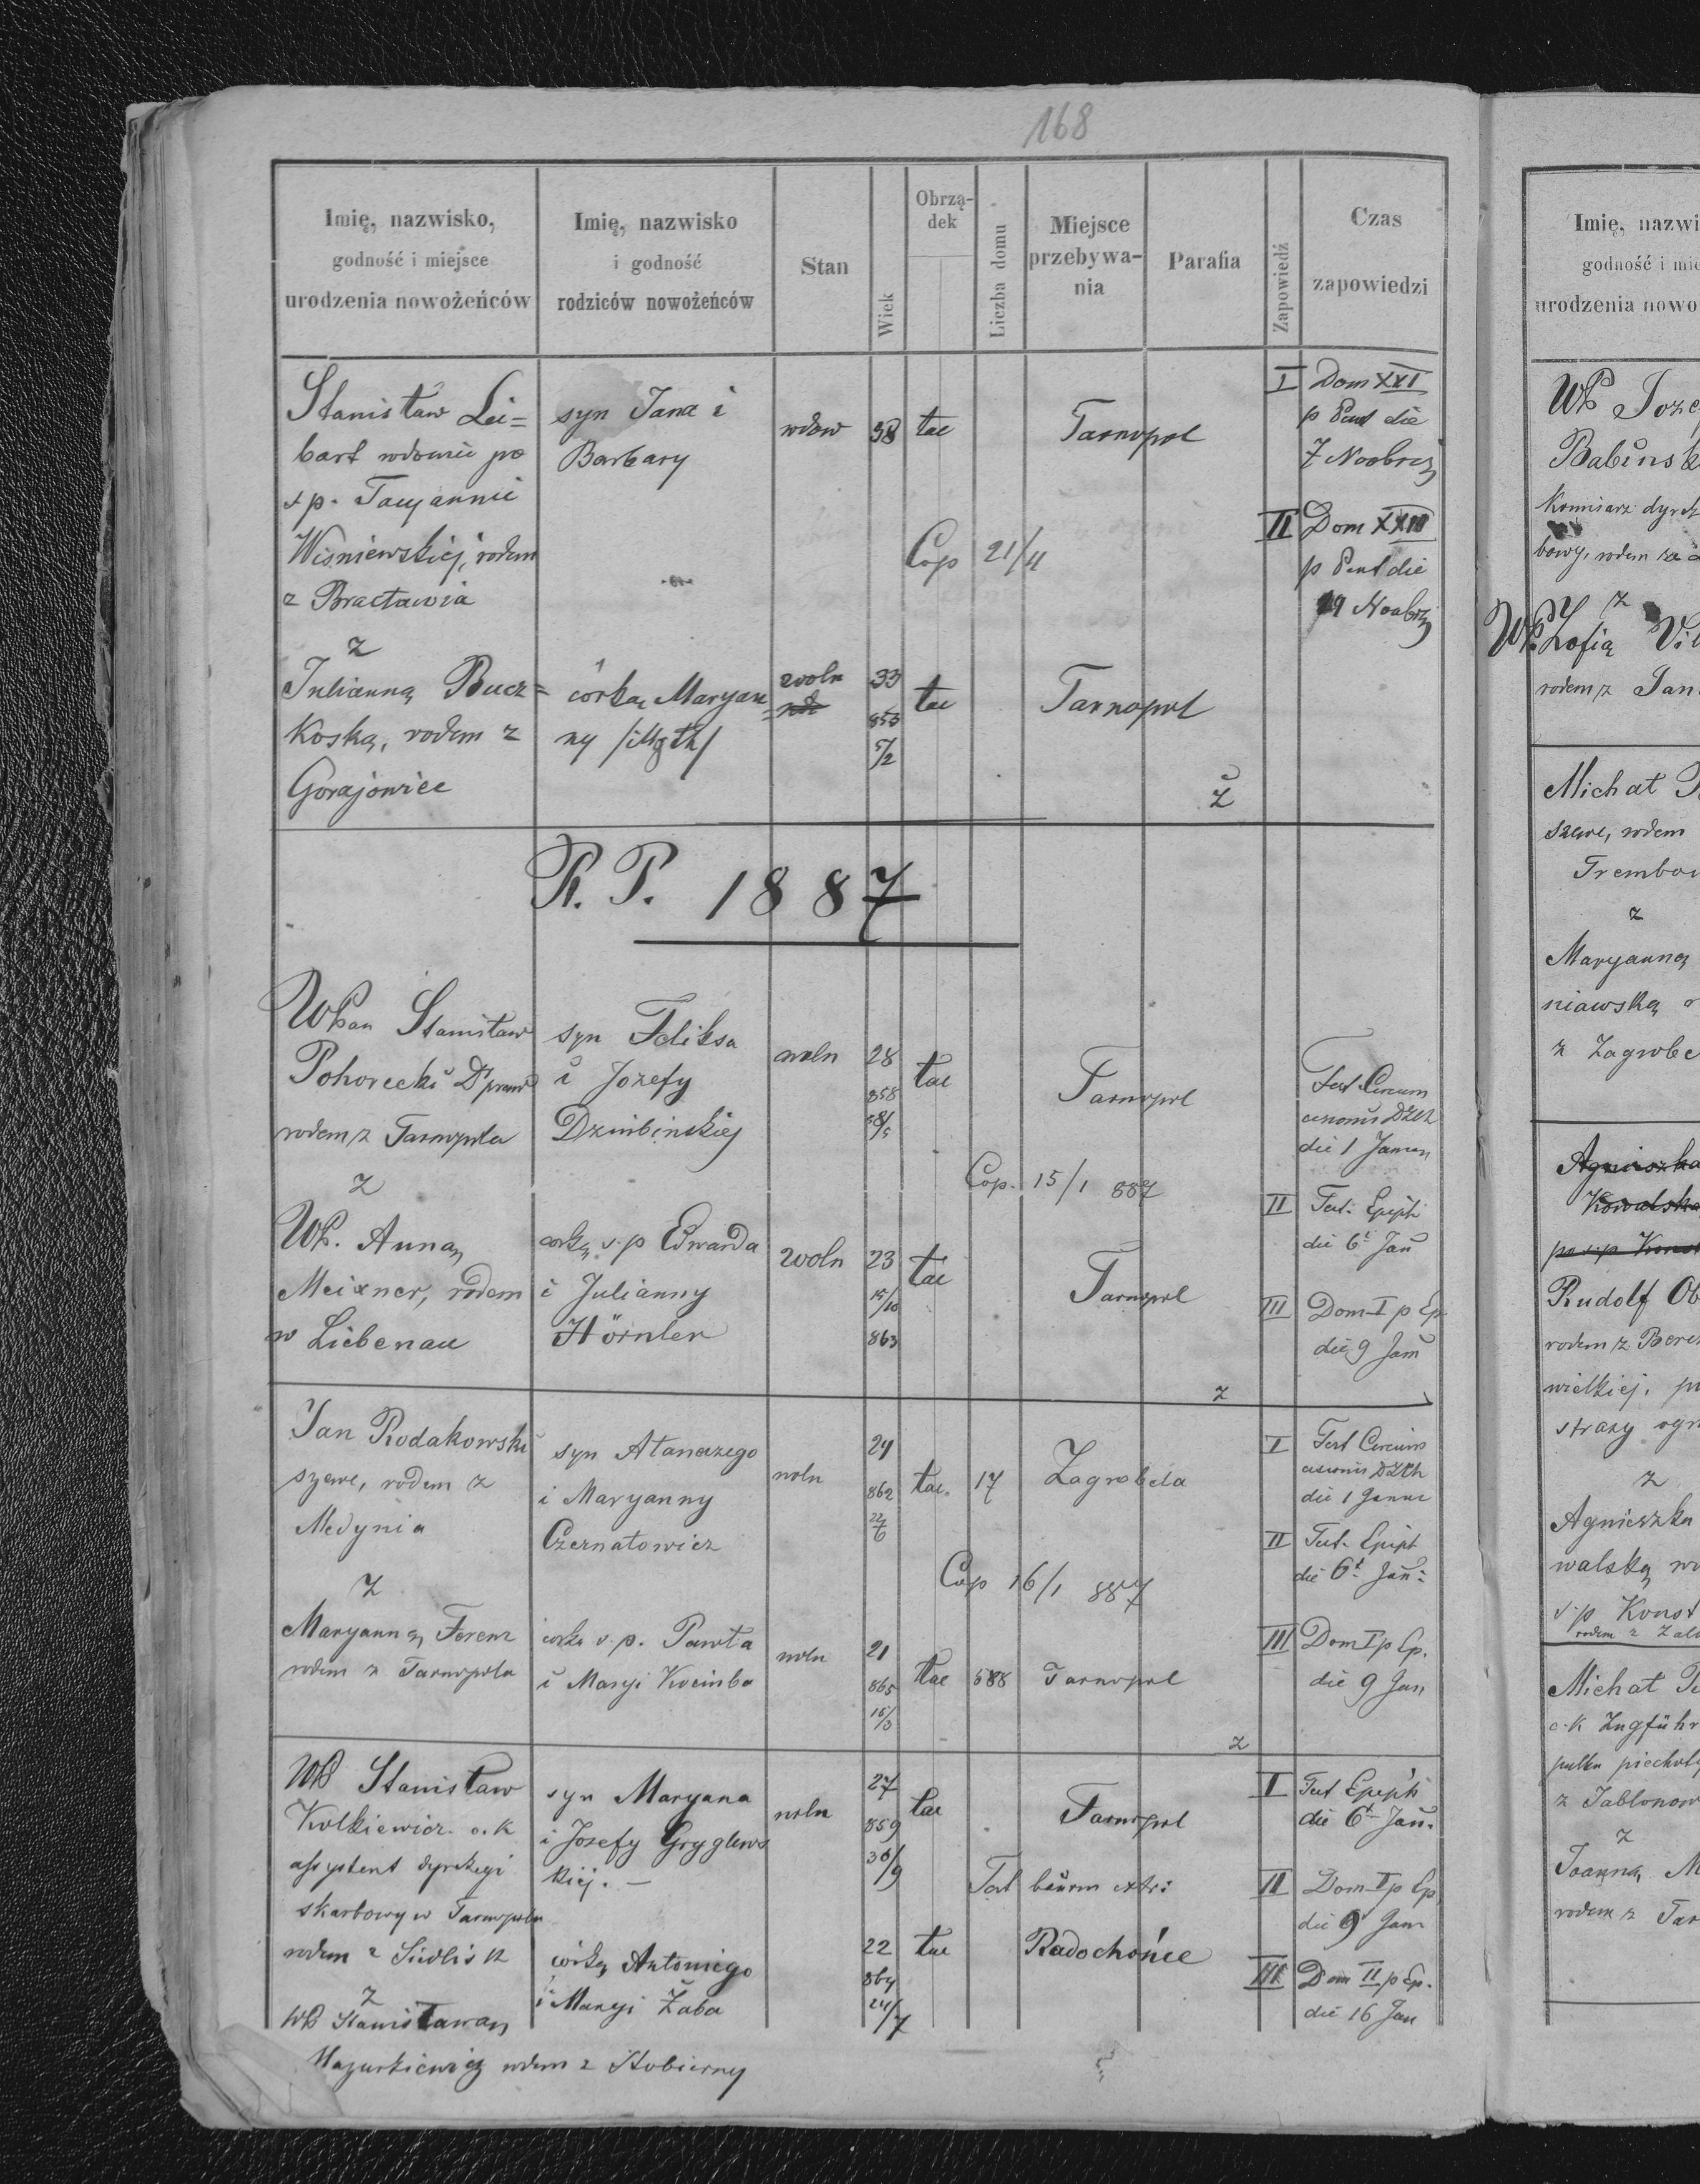 168
Imię, nazwisko,
godność i miejsce
urodzenia nowożeńców
Imię, nazwisko
i godność
rodziców nowożeńców
Stan
Wiek
Obrzą-
dek
Liczba domu
Miejsce
przebywa-
nia
Parafia
Zapowiedź
Czas
zapowiedzi
Stanisław Lei=
bart wdowiec po
ś p. Tacyannie
Wisniewskiej, rodem
z Bracławia
z
Julianną Bucz=
koską, rodem z
Gorajowice
syn Jana i
Barbary
córką Maryan
ny
wdow
38
łac
Tarnopol
Cop 21/11
woln
33
853
5/2
łac
Tarnopol
ż
I
Dom XXI
p Pent die
7 Novbris
II
Dom XXIII
p Pent die
Novbris
R. P. 1887
WPan Stanisław
Pohorecki Dr praw
rodem z Tarnopola
z
WP. Anną
Meixner, rodem
w Liebenau
syn Feliksa
i Jozefy
Dzinbinskiej
córką ś.p Edwarda
i Julianny
Hörnler
woln
28
858
łac
Tarnopol
Cop. 15/1 887
woln
23
15/10
863
łac
Tarnopol
Fest Circum
cisionis
die 1 Januar
II
Fest. Epiph
die 6t Jan
III
Dom I p Ep
die 9 Jan
z
Jan Rodakowski
szewc, rodem z
Medynia
z
Maryanną Ferenz
rodem z Tarnopola
syn Atanazego
i Maryanny
Czernatowicz
córką ś.p. Pawła
i Maryi Kocimba
woln
24
862
22/6
łac.
17
Zagrobela
Cop 16/1 887
woln
21
865
15/3
łac
588
Tarnopol
I
Fest Circum
cisionis
die 1 Januar
II
Fest. Epiph
die 6t Jan:
III
Dom I p Ep.
die 9 Jan
z
WP Stanisław
Kolkiewicz c.k
assystent dyrekcyi
skarbowy w Tarnopolu
rodem z Siedlisk
z
WP Stanisławą
Mazurkiewicz rodem z Stobierny
syn Maryana
i Jozefy Gryglews
kiej. —
córką Antoniego
i Maryi Żaba
woln
27
859
30/9
łac
Tarnopol
22
864
24/7
łac
Radochońce
I
Fest Epiph
die 6t Jan.
II
Dom I p Ep
die 9 Jan
III
Dom II p Ep.
die 16 Jan
Imię, nazwi
godność i mie
urodzenia nowo
WP Joze
Babinsk
bowy, rodem
z
WP. Zofią
rodem z Jan
Michał
szewc, rodem
Trembow
z
Maryanną
niawską
z Zagrobe
Agnieszka
Kowalska
Rudolf Ob
rodem z Bere
wielkiej, po
straży ogn
z
Agnieszka
walską
ś.p Konst
Michał
c.k Zugführ
pułku piechoty
z Jablonow
z
Joanną M
rodem z Tar